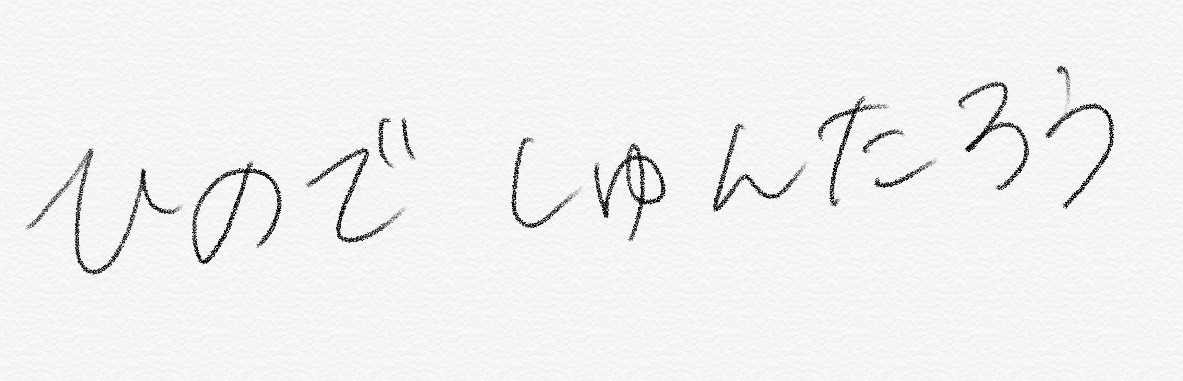 ひので しゅんたろう